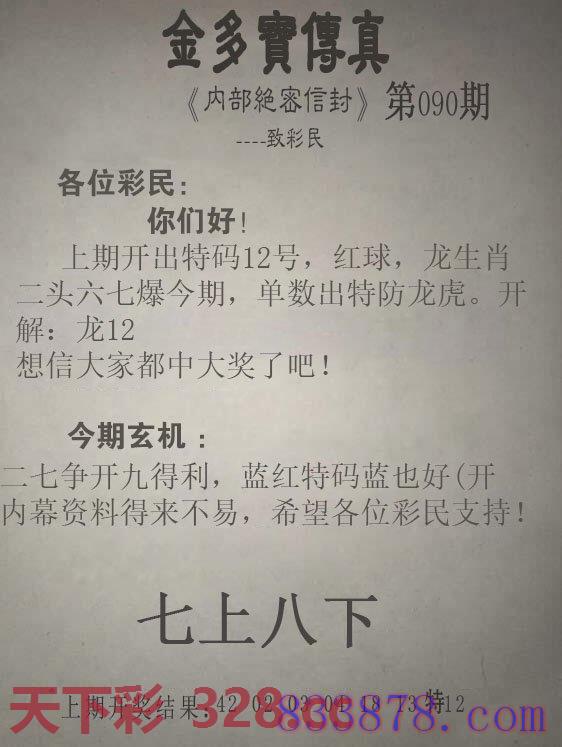 金多寳傳真
《内部絶密信封》第090期
----致彩民
各位彩民：
你们好！
上期开出特码12号，红球，龙生肖
二头六七爆今期，单数出特防龙虎。开
解：龙12
想信大家都中大奖了吧！
今期玄机：
二七争开九得利，蓝红特码蓝也好(开
内幕资料得来不易，希望各位彩民支持！
七上八下
上期开奖结果:42 02 03 04 18 13特12
天下彩 328.cc 833878.com